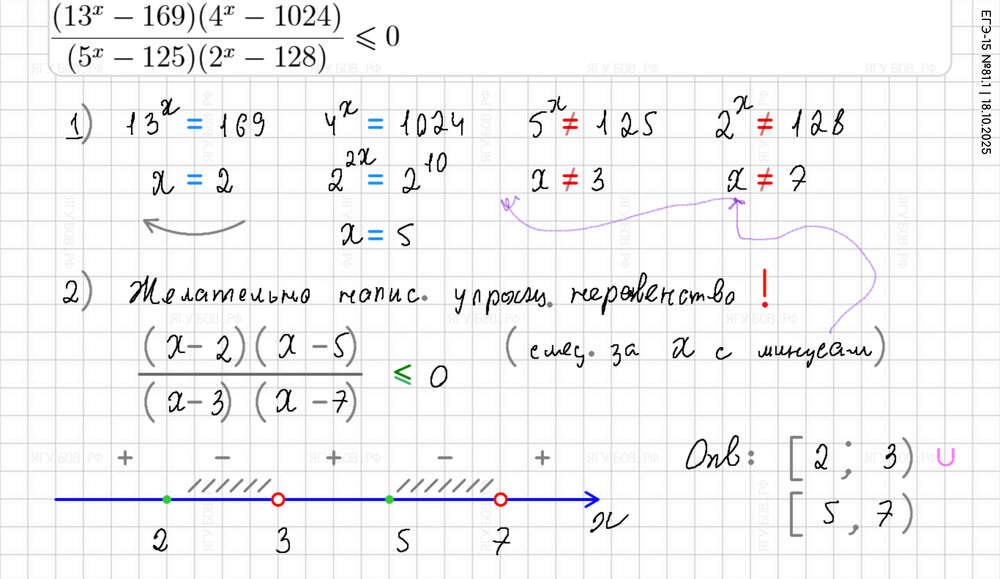 (13^x − 169)(4^x − 1024)
(5^x − 125)(2^x − 128)
⩽ 0
ЕГЭ-15 №81.1 | 18.10.2025
1) 13^x = 169 4^x = 1024 5^x ≠ 125 2^x ≠ 128
x = 2 2^2x = 2^10 x ≠ 3 x ≠ 7
x = 5
2) Желательно напис. упрощ. неравенство !
(x − 2)(x − 5)
(x − 3)(x − 7)
≤ 0
(след. за x с минусам)
+ − + − +
2 3 5 7 x
Отв: [2; 3) ∪
[5, 7)
ЯГУБОВ.РФ